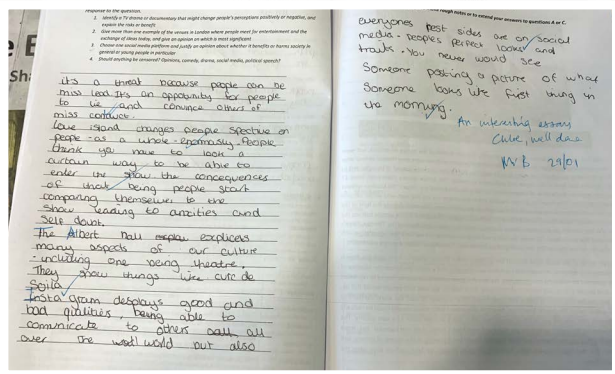 response to the question.
1. Identify a TV drama or documentary that might change people's perceptions positively or negative, and
explain the risks or benefit
2. Give more than one example of the venues in London where people meet for entertainment and the
exchange of ideas today, and give an opinion on which is most significant
3. Choose one social media platform and justify an opinion about whether it benefits or harms society in
general or young people in particular
4. Should anything be censored? Opinions, comedy, drama, social media, political speech?
its a threat because people can be
miss lead. It's an oppotunity for people
to lie and convince others of
miss conduct.
Love island changes people spective on
people - as a whole - enormasly. People
think you have to look a
curtain way to be able to
enter the show the concequences
of that being people start
comparing themselves to the
show leading to anxities and
self doubt.
The Albert hall explicers
many aspects of our culture
- including one being theatre,
They show things like
Insta gram desplays good and
bad qualities, being able to
comunicate to others all
over the world but also
rough notes or to extend your answers to questions A or C.
everyones best sides are on social
media - peoples perfect looks and
traits. You never would see
Someone posting a picture of what
Someone looks like first thing in
the morning.
An interesting essay
well done
29/01